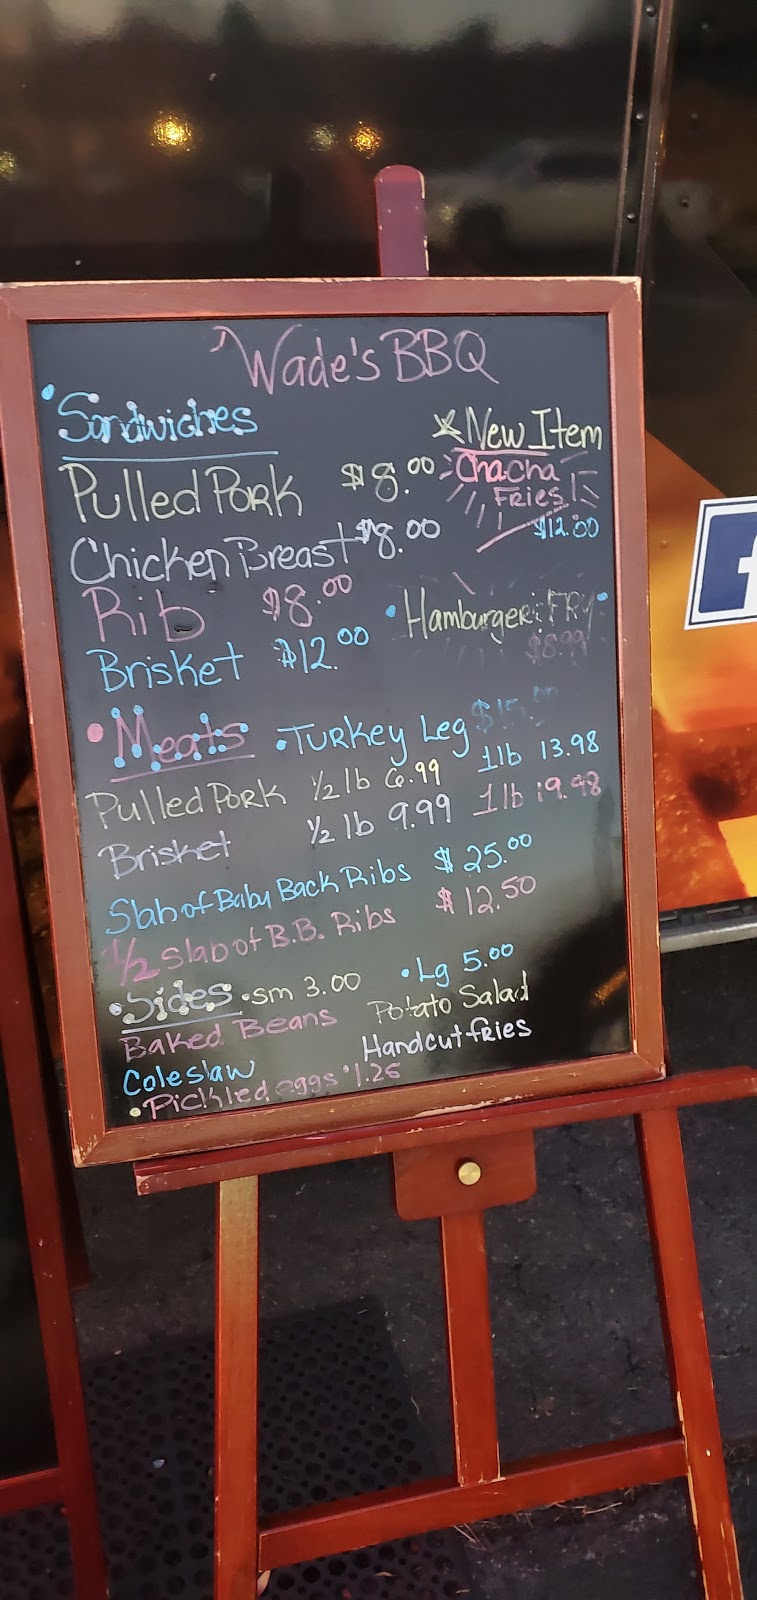 Wade's BBQ
Sandwiches
Pulled Pork $8.00
Chicken Breast $8.00
Rib $8.00
Brisket $12.00
New Item
ChaCha
Fries!
$12.00
Hamburger & FRY
$8.99
Meats
Turkey Leg $15.00
Pulled Pork 1/2 lb 6.99 1lb 13.98
Brisket 1/2 lb 9.99 1lb 19.98
Slab of Baby Back Ribs $25.00
1/2 Slab of B.B. Ribs $12.50
Sides • sm 3.00 • Lg 5.00
Baked Beans Potato Salad
Coleslaw Handcut fries
• Pickled eggs $1.25
f